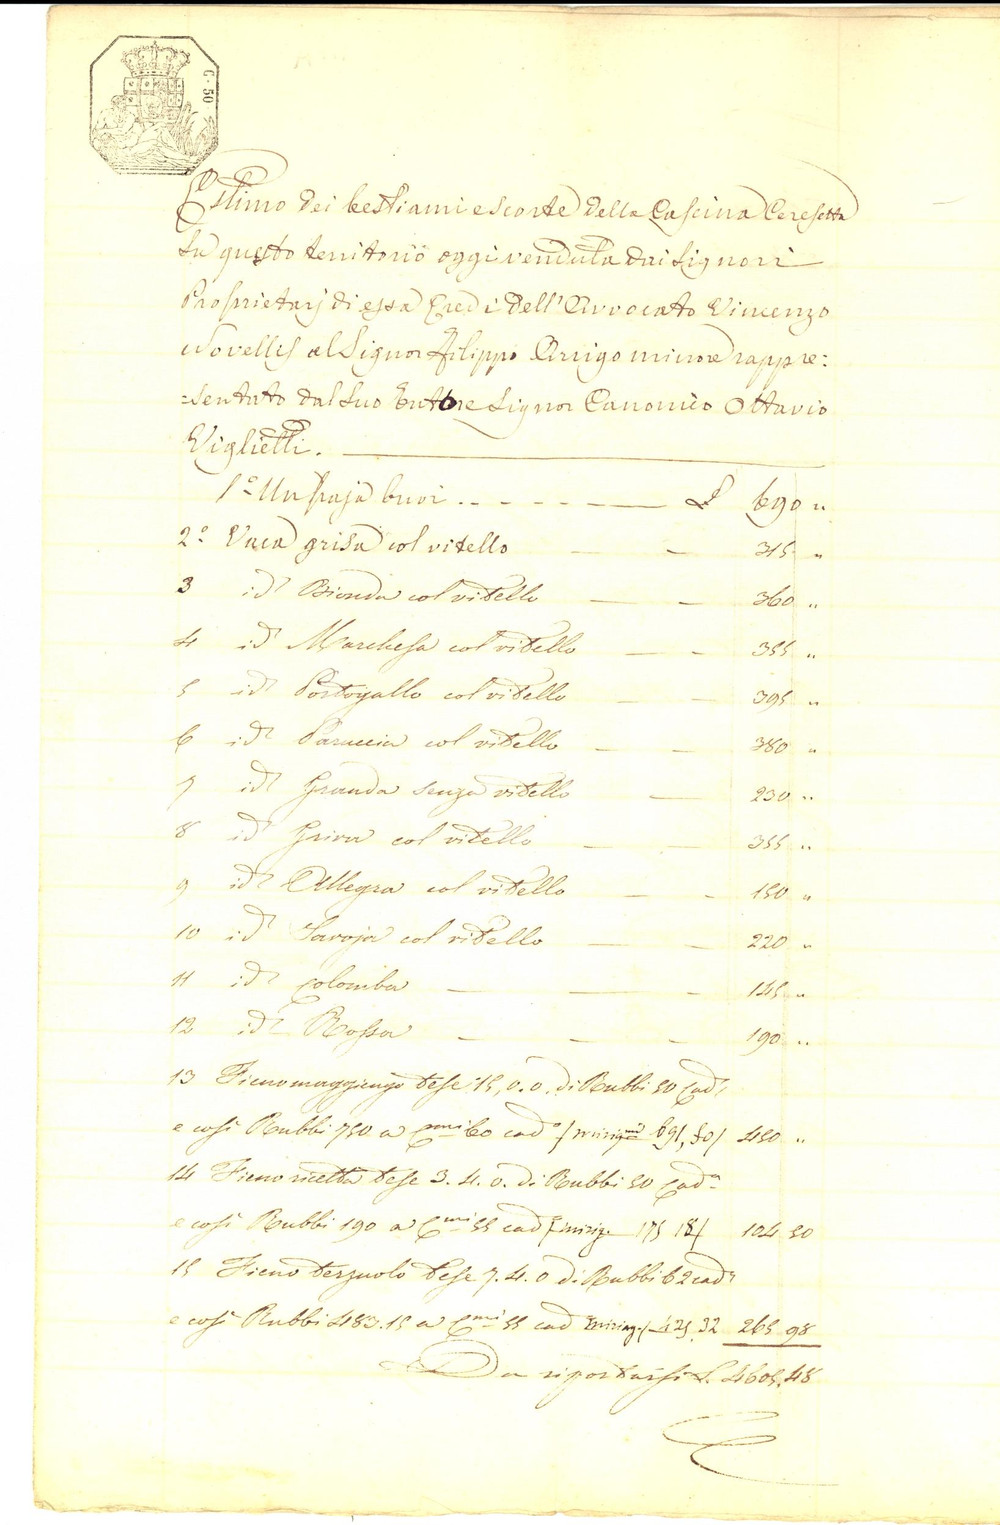 C. 50
Estimo dei bestiami e scorte della Cascina Ceresetta
su questo territorio oggi venduta dai Signori
Proprietarj di essa Eredi dell'Avvocato Vincenzo
Novellis al Signor Filippo Arrigo minore rappre:
:sentato dal suo tutore Signor Canonico Ottavio
Viglietti.
1° Un paja buoi £ 690 "
2° Vaca grisa col vitello 315 "
3 id Bionda col vitello 360 "
4 id Marchesa col vitello 355 "
5 id Portogallo col vitello 395 "
6 id Paruccia col vitello 380 "
7 id Granda senza vitello 230 "
8 id Griva col vitello 355 "
9 id Allegra col vitello 150 "
10 id Savoja col vitello 220 "
11 id Colomba 145 "
12 id Rossa 190 "
13 Fieno maggiengo tese 15,0.0. di Rubbi 50 cad.
e così Rubbi 750 a Cmi 60 cad° / miriag 691,50 / 450 "
14 Fieno ricetta tese 3.4.0. di Rubbi 50 cad.
e così Rubbi 190 a Cmi 55 cad / miriag. 175 18 / 104 50
15 Fieno terzuolo tese 7.4.0 di Rubbi 62 cad.
e così Rubbi 483.15 a Cmi 55 cad miriag. / 425.32 265 98
Da riportarsi £. 4605.48